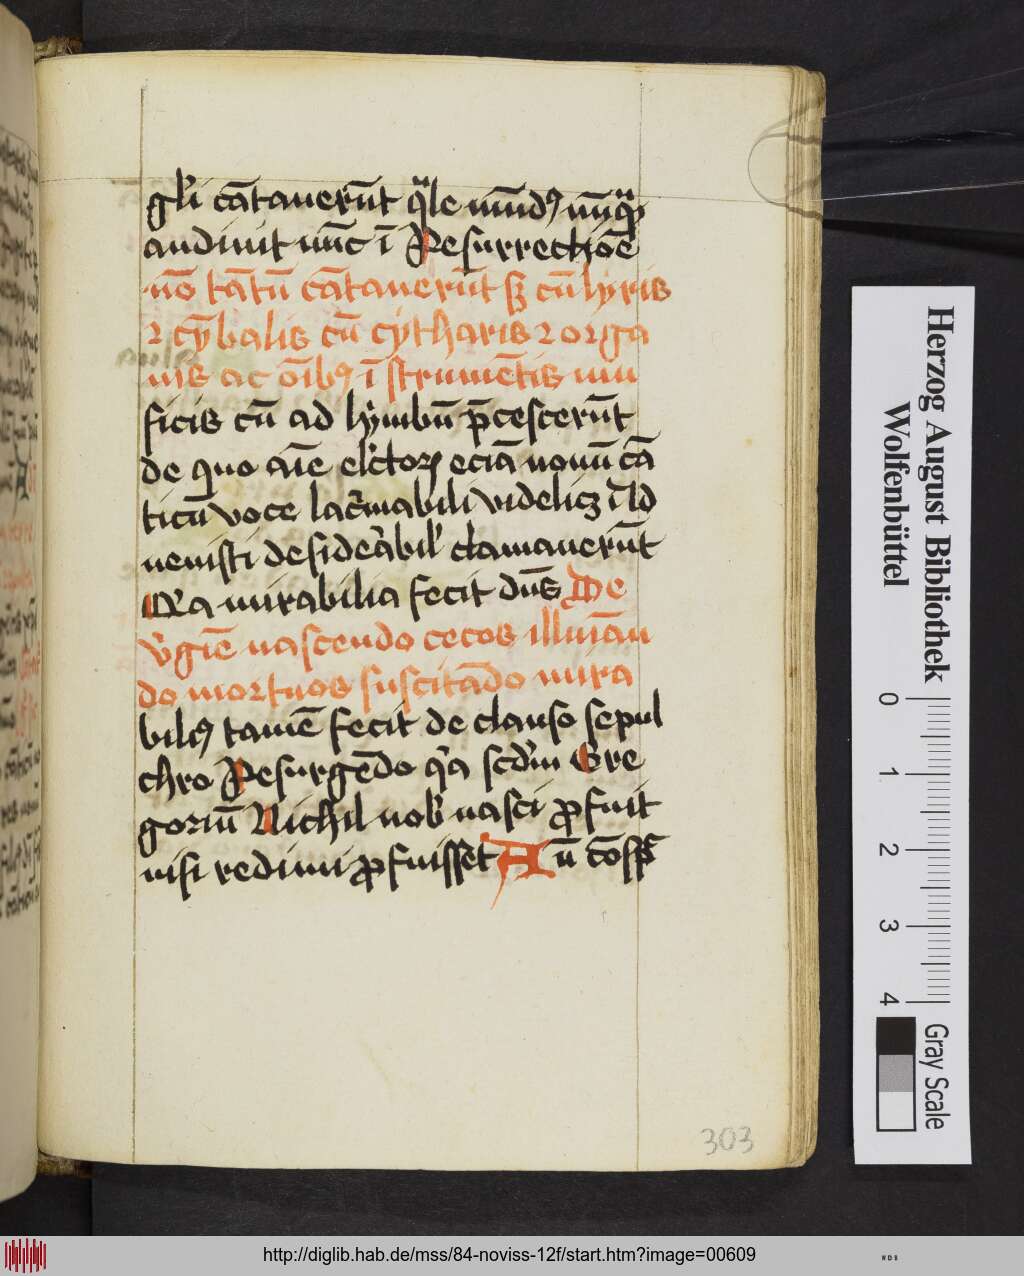 gl'i cātauerūt qͣle mūdꝰ nūqͣꝫ
audiuit nūc ī Resurrectiōe
nō tātū cātauerūt sꝫ cū lyris
ꝛ cȳbalis cū cytharis ꝛ orga
nis ac oībꝫ īstrumētis mu
ficis cū ad lymbū p̄cesserūt
de quo aīe el'ctoꝝ eciā nouū cā
ticū voce lac̄mabili videlicꝫ
uenisti desiderabil' clamauerūt
Q'a mirabilia fecit dn̄s De
v'gīe nascendo cecos illuīan
do mortuos suscitādo mira
bilꝰ tamē fecit de clauso sepul
chro Resurgēdo q'a scd'm Gre
goriū Nichil nob' nasci ꝓfuit
nisi redimi ꝓfuisset An̄
303
Herzog August Bibliothek
Wolfenbüttel
0 1 2 3 4
Gray Scale
http://diglib.hab.de/mss/84-noviss-12f/start.htm?image=00609